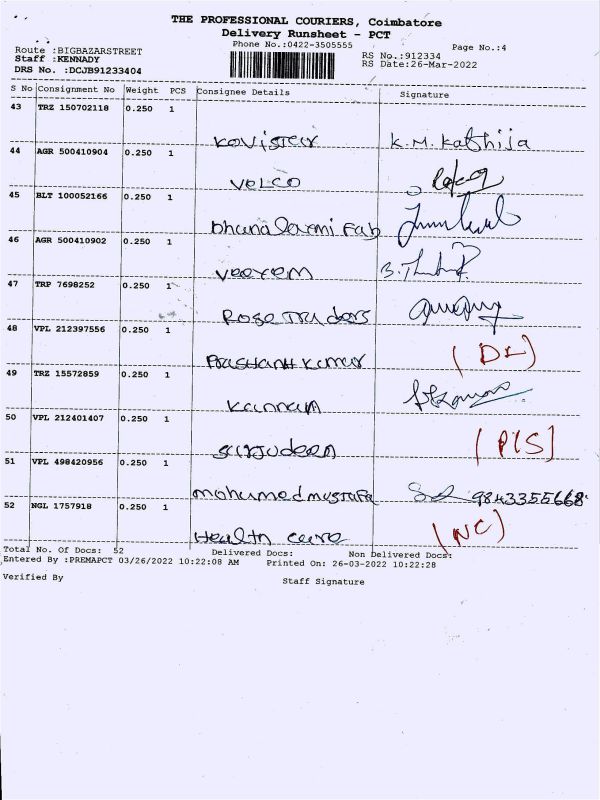 THE PROFESSIONAL COURIERS, Coimbatore
Delivery Runsheet - PCT
Phone No.:0422-3505555
Page No.:4
Route :BIGBAZARSTREET
Staff :KENNADY
DRS No. :DCJB91233404
RS No.:912334
RS Date:26-Mar-2022
S No Consignment No Weight PCS Consignee Details Signature
43 TRZ 150702118 0.250 1
K.M. Kathija
44 AGR 500410904 0.250 1
VOLCO
45 BLT 100052166 0.250 1
Dhanalaxmi Fab
46 AGR 500410902 0.250 1
Veeram
47 TRP 7698252 0.250 1
Rose Traders
48 VPL 212397556 0.250 1
Prashanth Kumar (DL)
49 TRZ 15572859 0.250 1
Kannan
50 VPL 212401407 0.250 1
Sirjudeen (P/S)
51 VPL 498420956 0.250 1
mohamed mustafa 9843355668
52 NGL 1757918 0.250 1
Health care (NC)
Total No. Of Docs: 52 Delivered Docs: Non Delivered Docs:
Entered By :PREMAPCT 03/26/2022 10:22:08 AM Printed On: 26-03-2022 10:22:28
Verified By Staff Signature